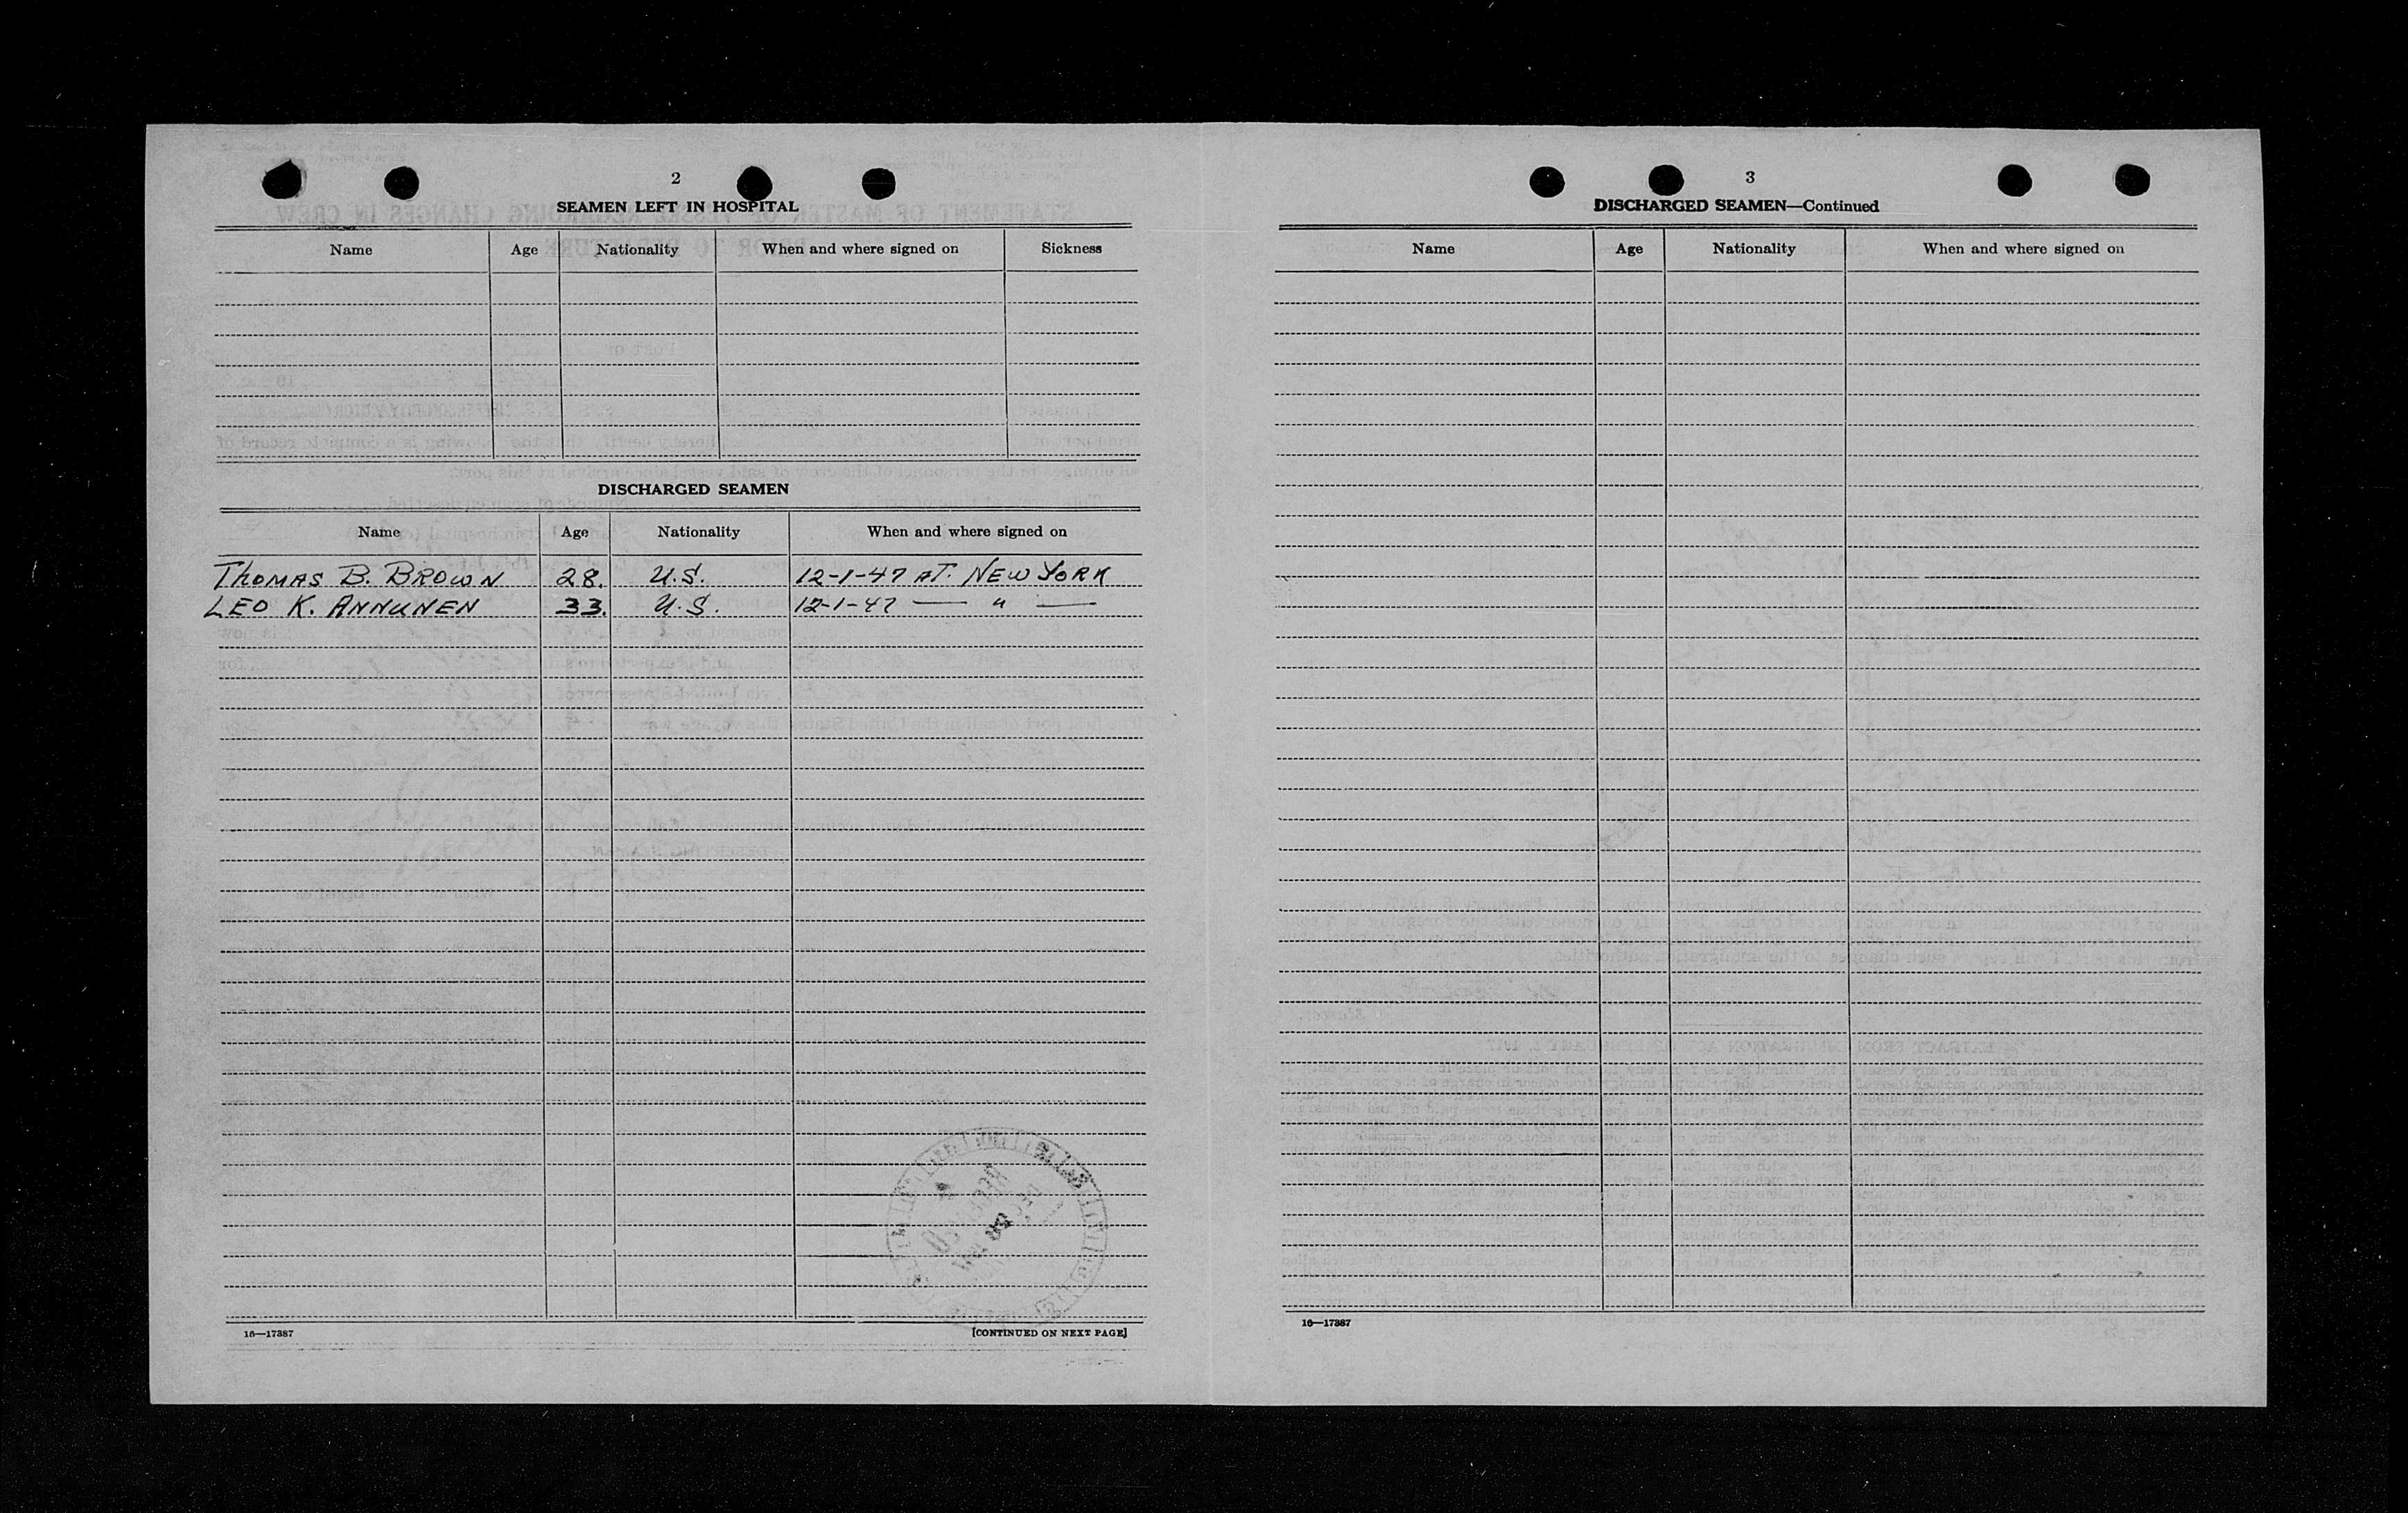 2
SEAMEN LEFT IN HOSPITAL
Name Age Nationality When and where signed on Sickness
DISCHARGED SEAMEN
Name Age Nationality When and where signed on
THOMAS B. BROWN 28. U.S. 12-1-47 AT. NEW YORK
LEO K. ANNUNEN 33. U.S. 12-1-47 — " —
RECEIVED
16—17387 [CONTINUED ON NEXT PAGE]
3
DISCHARGED SEAMEN—Continued
Name Age Nationality When and where signed on
16—17387